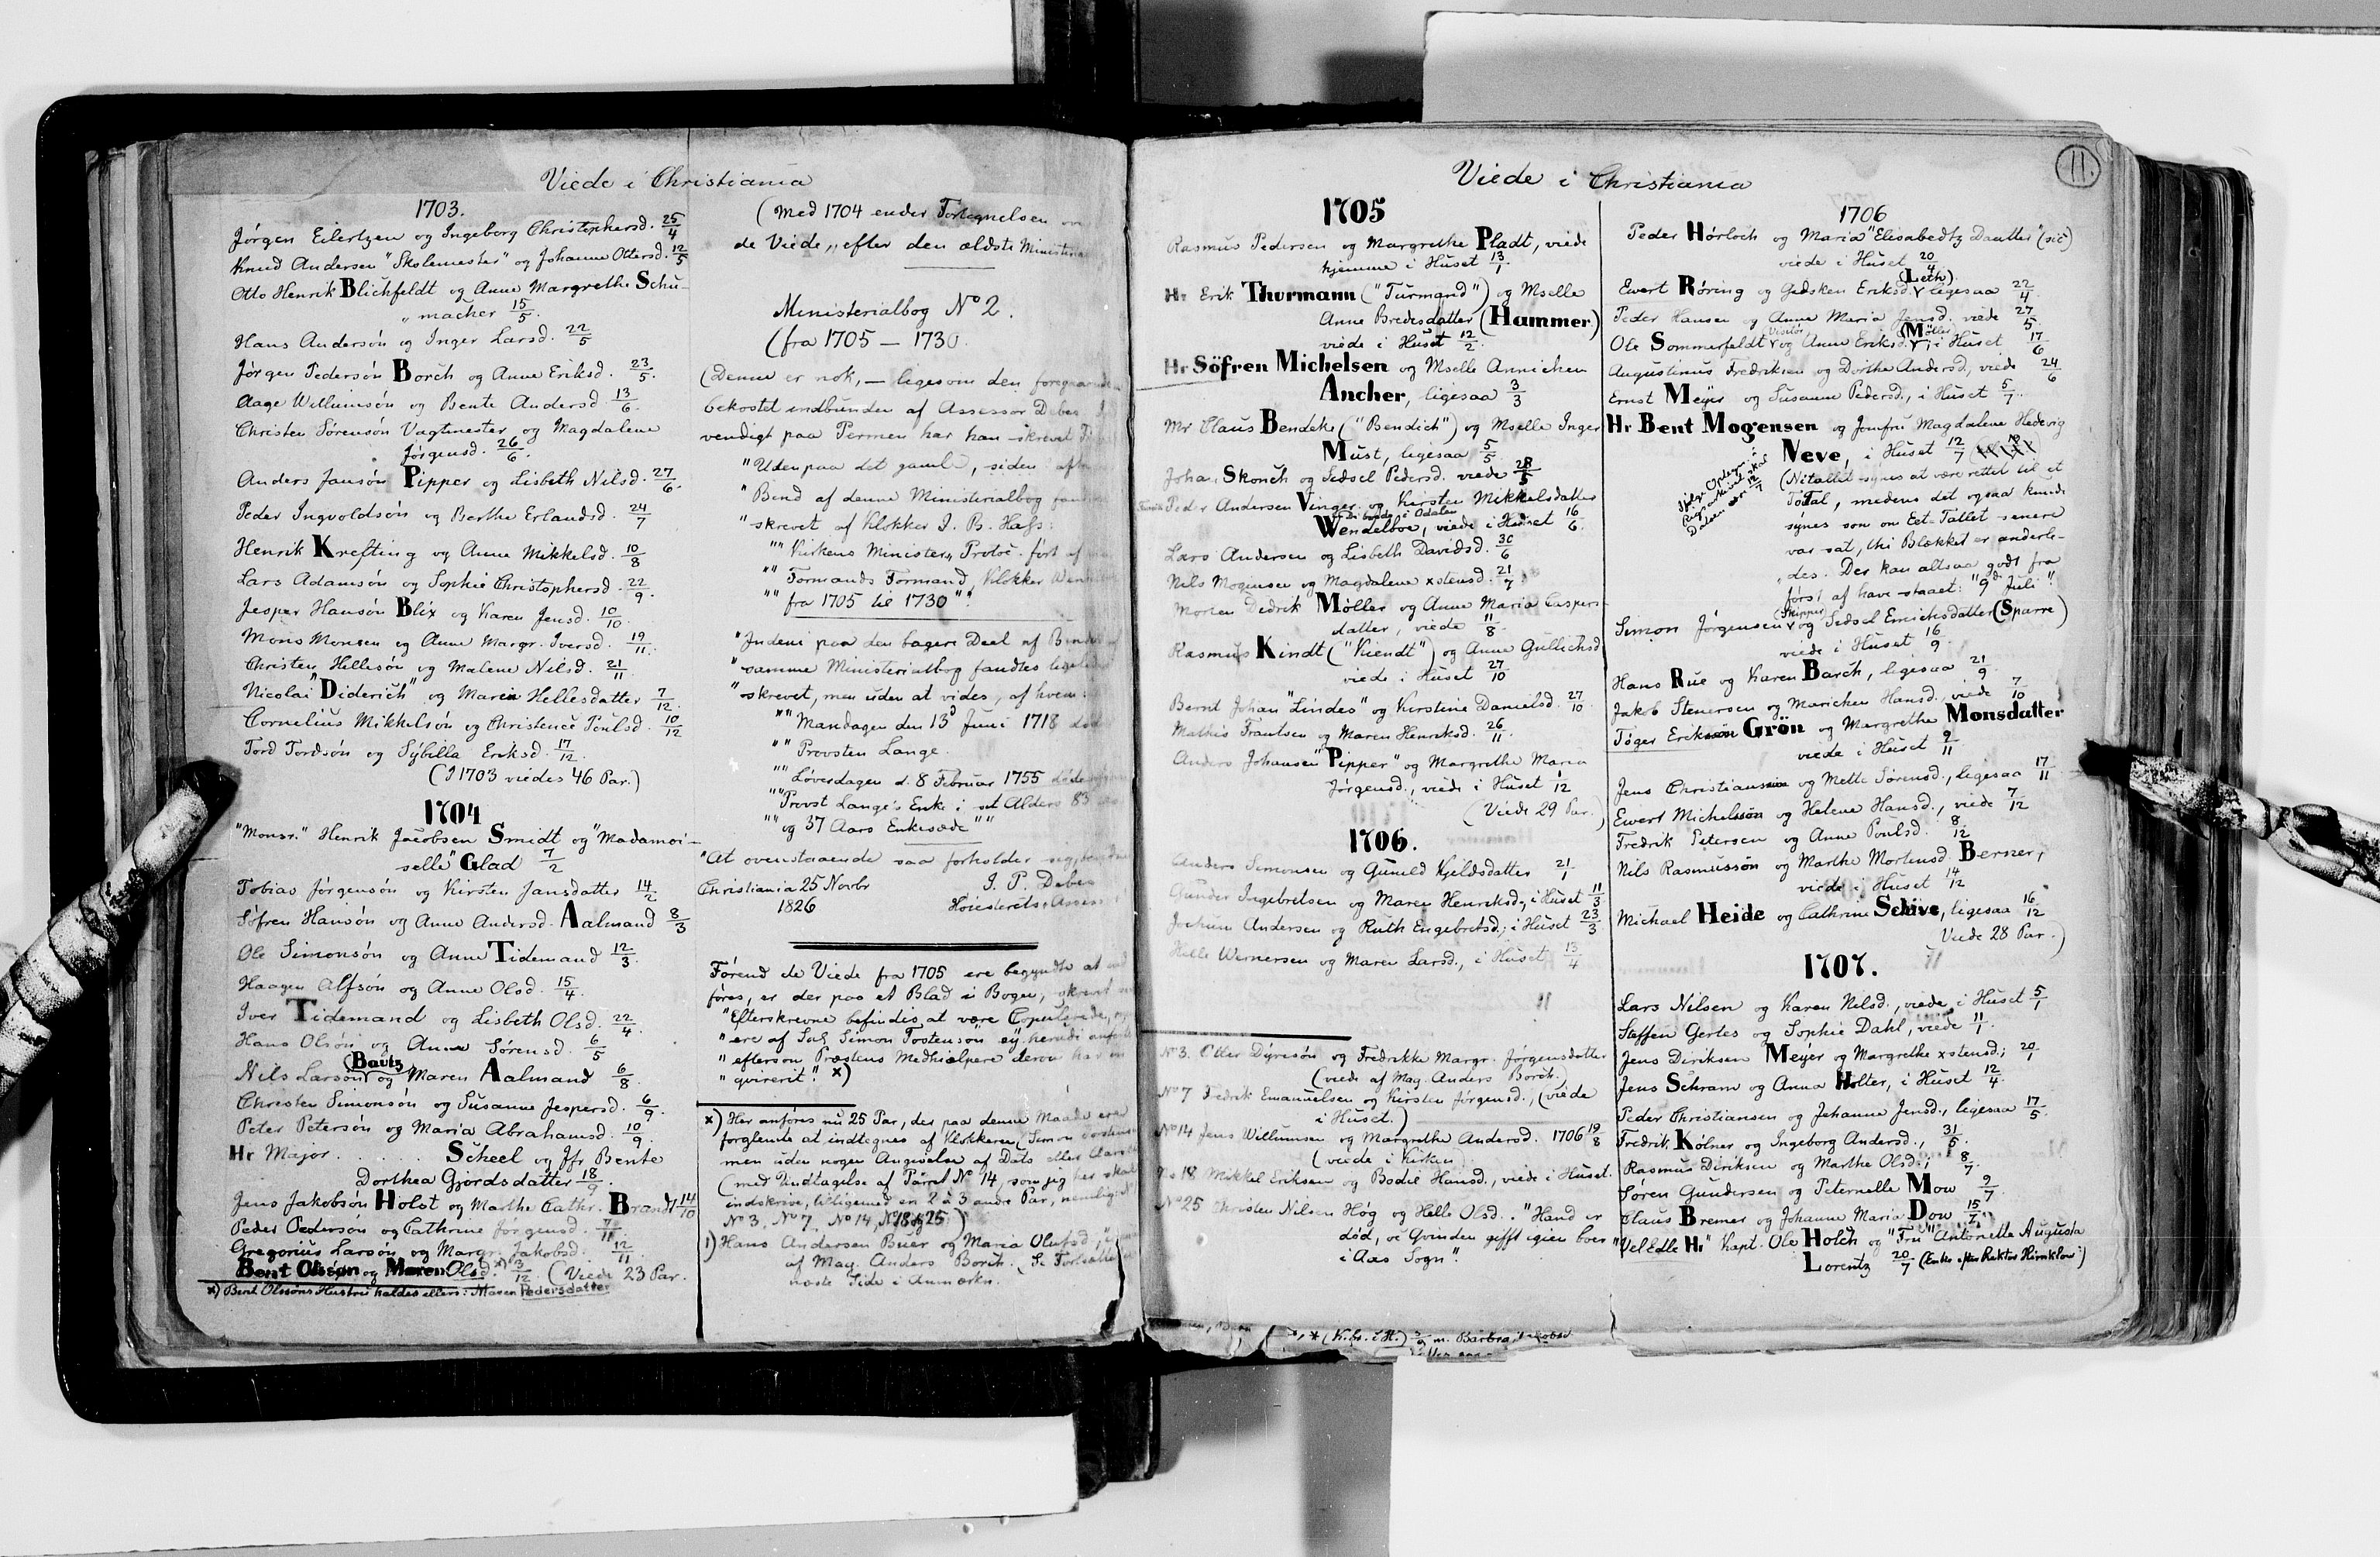 Viede i Christiania
1703.
Jørgen Eilertzen og Ingeborg Christophersd. 25/4
Knud Andersen "Skolemester" og Johanne Ottersd. 12/5
Otto Henrik Blichfeldt og Anne Margrethe Schu-
macher 15/5.
Hans Andersøn og Inger Larsd. 22/5
Jørgen Pedersøn Borch og Anne Eriksd. 23/5.
Aage Willumsøn og Bente Andersd. 13/6.
Christen Sørensøn Vagtmester og Magdalene
Jørgensd. 26/6.
Anders Jansøn Pipper og Lisbeth Nilsd. 27/6.
Peder Ingvoldsøn og Berthe Erlandsd. 24/7
Henrik Krefting og Anne Mikkelsd. 10/8
Lars Adamsøn og Sophie Christophersd. 22/9.
Jesper Hansøn Blix og Karen Jensd. 10/10.
Mons Monsen og Anne Margr. Iversd. 19/11.
Christen Hellesøn og Malene Nilsd. 21/11
Nicolai "Diderich" og Maren Hellesdatter 7/12.
Cornelius Mikkelsøn og Christence Poulsd. 10/12
Tord Tordsøn og Sybilla Eriksd. 17/12.
(I 1703 viedes 46 Par.)
1704
"Monsr." Henrik Jacobsen Smidt og "Madamoi-
selle" Glad 7/2
Tobias Jørgensøn og Kirsten Jansdatter 14/2
Söfren Hansøn og Anne Andersd. Aalmand 8/3
Ole Simonsøn og Anne Tidemand 12/3.
Haagen Alfsøn og Anne Olsd. 15/4.
Iver Tidemand og Lisbeth Olsd. 22/4.
Hans Olsøn og Anne Sørensd. 6/5
(Bautz)
Nils Larsøn og Maren Aalmand 6/8.
Christen Simonsøn og Susanne Jespersd. 6/9.
Peter Petersøn og Maria Abrahamsd. 10/9.
Hr Major . . . . . Scheel og Jfr Bente
Dorthea Gjordsdatter 18/9.
Jens Jakobsøn Holst og Marthe Cathr. Brandt 14/10
Peder Pedersøn og Cathrine Jørgensd. 7/11.
Gregorius Larsøn og Margr. Jakobsd. 12/11.
Bent Olssøn og Maren Olsd. x) 3/12. (Viede 23 Par.
x) Bent Olssøns Hustru kaldes ellers: Maren Pedersdatter
(Med 1704 ender Fortegnelsen
de Viede, efter den ældste
Ministerialbog No 2.
(fra 1705 — 1730.
(Denne er nok, — ligesom den
bekostet indbunden af Assessor Debes.
vendigt paa Permen har han skrevet
"Uden paa det gamle, siden
"Bind af denne Ministerialbog
"skrevet af Klokker J. B. Hass:
"" Kirkens Minister. Protoc. ført af
"" Formands Formand, Klokker
"" fra 1705 til 1730".
"Indeni paa den bagere Deel af
"samme Ministerialbog fandtes
"skrevet, men uden at vides, af hvem:
"" Mandagen den 13d Juni 1718 død
"" Provsten Lange.
"" Löverdagen d. 8 Februar 1755
"" Provst Lange's Enke i sit Alders 83
"" og 37 Aars Enkesæde""
"At ovenstaaende saa forholder sig,
Christiania 25 Novbr J. P. Debes
1826
Förend de Viede fra 1705 ere begyndte at
föres, er der paa et Blad i Bogen,
"Efterskrevne befindis at være Copulerede,
"ere af Sal. Simon Tostensøn ey herudi
"eftersom Præstens Medhielpere derom har
"qvirerit". x)
x) Her anføres nu 25 Par, der paa denne Maade ere
forglemte at indtegnes af Klokkeren (Simon
men uden nogen Angivelse af Dato eller
(med Undtagelse af Parret No 14, som jeg her skal
indskrive, tilligemed en 2 à 3 andre Par, nemlig
No 3, No 7, No 14, No 18 og 25)
1) Hans Andersen Buer og Maria Olufsd.,
af Mag. Anders Borch. (Se
næste Side i Anmærkn.
Viede i Christiania
11.
1705
Rasmus Pedersen og Margrethe Pladt, viede
hjemme i Huset 13/1.
Hr Erik Thurmann ("Turmand") og Mselle
Anne Bredesdatter (Hammer)
viede i Huset 12/2.
Hr Söfren Michelsen og Mselle Annichen
Ancher, ligesaa 3/3
Mr Claus Bendeke ("Bendich") og Mselle Inger
Must, ligesaa 5/5
Johan Skonch og Sidsel Pedersd. viede 28/5
Peder Andersen Vinger og Kirsten Mikkelsdatter
Wendelboe, viede i Huset 16/6.
Lars Andersen og Lisbeth Davidsd. 30/6
Nils Mogensen og Magdalene xstensd. 21/7
Morten Didrik Møller og Anne Maria Caspers-
datter, viede 11/8.
Rasmus Kindt ("Kiendt") og Anne Gullichsd
viede i Huset 27/10
Bernt Johan "Lindes" og Kirstine Danielsd. 27/10.
Mathis Frantsen og Maren Henriksd. 26/11.
Anders Johansen "Pipper" og Margrethe Maria
Jørgensd., viede i Huset 1/12
(Viede 29 Par.)
1706.
Anders Simonsen og Gunild Kjeldsdatter 21/1
Gunder Ingebretsen og Maren Henriksd., i Huset 11/3.
Jochum Andersen og Ruth Engebretsd., i Huset 23/3
Helle Wernersen og Maren Larsd., i Huset 13/4
No 3. Otter Dyresøn og Fredrikke Margr. Jørgensdatter
(viede af Mag. Anders Borch.)
No 7 Fredrik Emanuelsen og Kirsten Jørgensd., (viede
i Huset.)
No 14 Jens Willumsen og Margrethe Andersd. 1706 19/8
(viede i Kirken)
No 18 Mikkel Eriksen og Bodil Hansd., viede i Huset.
No 25 Christen Nilsen Høg og Helle Olsd. "Hand er
död, oc Qvinden gifft igien boer
i Aas Sogn".
* (K.br. i H.) m. Barbra
1706
Peder Hörloch og Maria "Elisabedtz Daatter" (sic)
viede i Huset 20/4
(Leth)
Ewert Röring og Gidsken Eriksd., ligesaa 22/4.
Peder Hansen og Anne Maria Jensd. viede 27/5.
(Visitör) (Möller)
Ole Sommerfeldt og Anne Eriksd., i Huset 17/6
Augustinus Fredriksen og Dorthe Andersd, viede 24/6
Ernst Meyer og Susanne Pedersd., i Huset 5/7.
Hr Bent Mogensen og Jomfru Magdalene Hedevig
Neve, i Huset 12/7
(Nitallet synes at være rettet til et
Total, medens det ogsaa kunde
synes som om Eet-Tallet senere
var sat, thi Blækket er anderle-
des. Der kan altsaa godt fra
først af have staaet: "9de Juli".
(Skipper)
Simon Jørgensen og Sidsel Emichsdatter (Sparre)
viede i Huset 16/9
Hans Rue og Karen Barch, ligesaa 21/9.
Jakob Stenersen og Marichen Hansd. viede 7/10
Töger Eriksøn Grön og Margrethe Monsdatter
viede i Huset 9/11
Jens Christiansen og Mette Sørensd., ligesaa 17/11
Ewert Michelsøn og Helene Hansd., viede 7/12
Fredrik Petersen og Anne Poulsd. 8/12
Nils Rasmussøn og Marthe Mortensd. Berner,
viede i Huset 14/12
Michael Heide og Cathrine Schive, ligesaa 16/12
Viede 28 Par.)
1707.
Lars Nilsen og Karen Nilsd., viede i Huset 5/1
Steffen Gertes og Sophie Dahl, viede 11/1.
Jens Diriksen Meyer og Margrethe xstensd., 20/1
Jens Schram og Anna Holter, i Huset 12/4.
Peder Christiansen og Johanne Jensd., ligesaa 17/5.
Fredrik Kölner og Ingeborg Andersd., 31/5.
Rasmus Diriksen og Marthe Olsd., 8/7.
Søren Gundersen og Peternelle Mow 9/7.
Claus Bremer og Johanne Maria Dow 15/7
"Vel Edle Hr" Kapt. Ole Holch og "Fru" Antonette Augusta
Lorentz 20/7 (Enke efter Rektor Hirnklow)